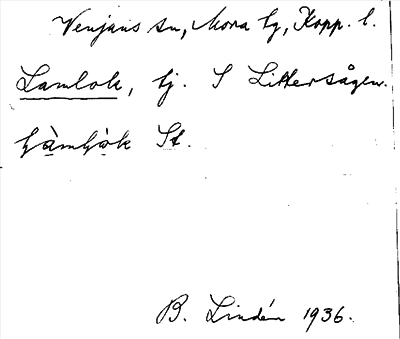 Venjans sn, Mora tg, Kopp. l.
Lamlok, tj. S Littersågen.
St.
B. Lindén 1936.